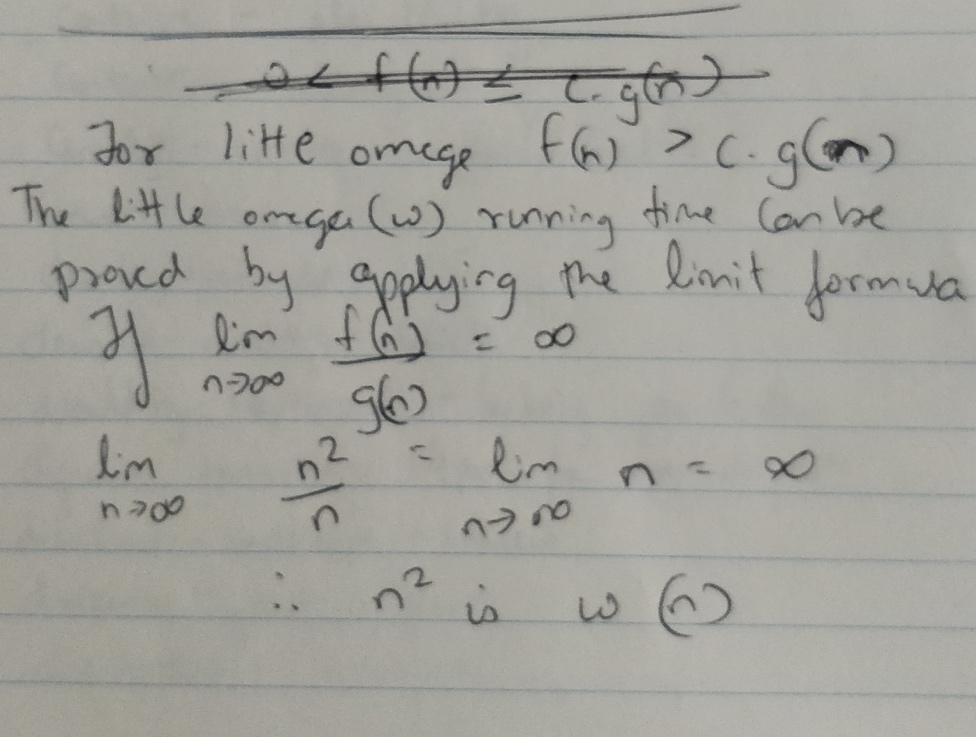 0 < f(n) ≤ c. g(n)
For little omege f(n) > c. g(n)
The little omega (ω) running time can be
proved by applying the limit formula
If lim n→∞ f(n)/g(n) = ∞
lim n→∞ n²/n = lim n→∞ n = ∞
∴ n² is ω (n)